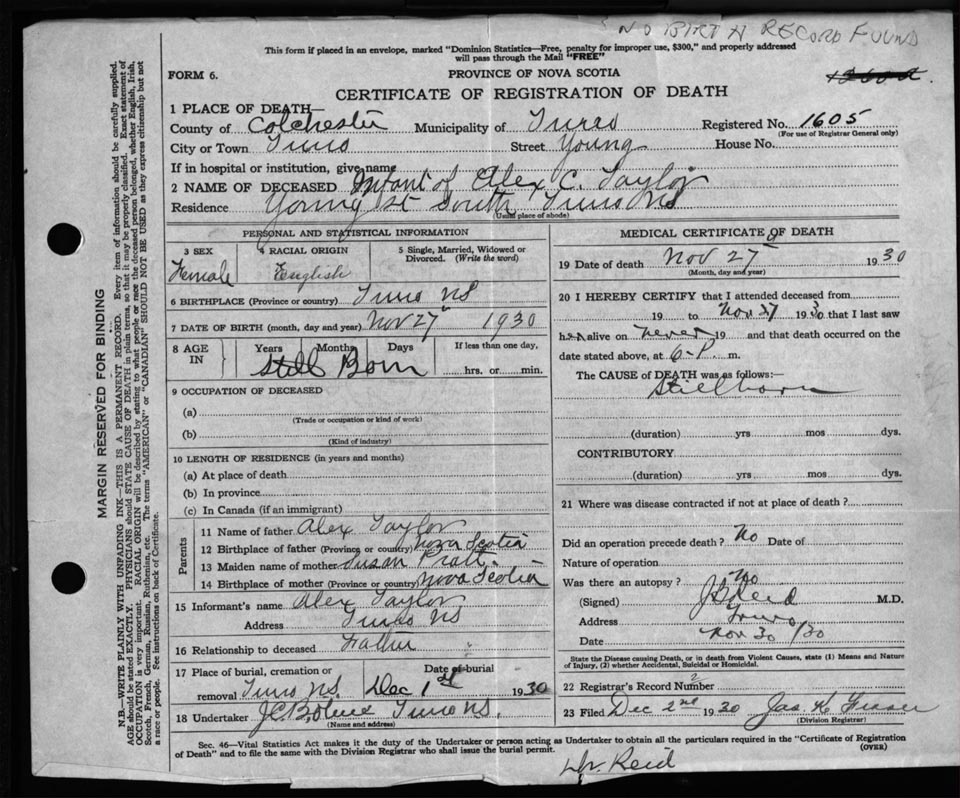 NO BIRTH RECORD FOUND
This form if placed in an envelope, marked "Dominion Statistics—Free, penalty for improper use, $300," and properly addressed
will pass through the Mail "FREE"
FORM 6.
PROVINCE OF NOVA SCOTIA
CERTIFICATE OF REGISTRATION OF DEATH
1 PLACE OF DEATH—
County of Colchester Municipality of Truro Registered No. 1605
(For use of Registrar General only)
City or Town Truro Street Young House No.
If in hospital or institution, give name
2 NAME OF DECEASED Infant of Alex C. Taylor
Residence Young St South Truro NS
(Usual place of abode)
PERSONAL AND STATISTICAL INFORMATION
3 SEX 4 RACIAL ORIGIN 5 Single, Married, Widowed or Divorced. (Write the word)
Female English
6 BIRTHPLACE (Province or country) Truro NS
7 DATE OF BIRTH (month, day and year) Nov 27 1930
8 AGE IN Years Months Days If less than one day,
Still Born hrs. or min.
9 OCCUPATION OF DECEASED
(a)
(Trade or occupation or kind of work)
(b)
(Kind of industry)
10 LENGTH OF RESIDENCE (in years and months)
(a) At place of death
(b) In province
(c) In Canada (if an immigrant)
Parents
11 Name of father Alex Taylor
12 Birthplace of father (Province or country) Nova Scotia
13 Maiden name of mother Susan Pratt
14 Birthplace of mother (Province or country) Nova Scotia
15 Informant's name Alex Taylor
Address Truro NS
16 Relationship to deceased Father
17 Place of burial, cremation or Date of burial
removal Truro NS. Dec 1st 1930
18 Undertaker Truro NS.
(Name and address)
MEDICAL CERTIFICATE OF DEATH
19 Date of death Nov 27 1930
(Month, day and year)
20 I HEREBY CERTIFY that I attended deceased from
19 to Nov 27 1930 that I last saw
h alive on never 19 and that death occurred on the
date stated above, at 6-P m.
The CAUSE of DEATH was as follows:
Stillborn
(duration) yrs mos dys.
CONTRIBUTORY
(duration) yrs. mos dys.
21 Where was disease contracted if not at place of death?
Did an operation precede death? No Date of
Nature of operation
Was there an autopsy? No
(Signed) Reid M.D.
Address Truro
Date Nov 30/30
State the Disease causing Death, or in death from Violent Causes, state (1) Means and Nature
of Injury, (2) whether Accidental, Suicidal or Homicidal.
22 Registrar's Record Number 2
23 Filed Dec 2nd 1930 Jas. K
(Division Registrar)
Sec. 46—Vital Statistics Act makes it the duty of the Undertaker or person acting as Undertaker to obtain all the particulars required in the "Certificate of Registration
of Death" and to file the same with the Division Registrar who shall issue the burial permit. (OVER)
Dr. Reid
MARGIN RESERVED FOR BINDING
N.B.—WRITE PLAINLY WITH UNFADING INK—THIS IS A PERMANENT RECORD. Every item of information should be carefully supplied.
AGE should be stated EXACTLY. PHYSICIANS should STATE CAUSE OF DEATH in plain terms, so that it may be properly classified. Exact statement of
OCCUPATION is very important. RACIAL ORIGIN will be described by stating to what people or race the deceased person belonged, whether English, Irish,
Scotch, French, German, Russian, Ruthenian, etc. The terms "AMERICAN" or "CANADIAN" SHOULD NOT BE USED as they express citizenship but not
a race or people. See instructions on back of Certificate.